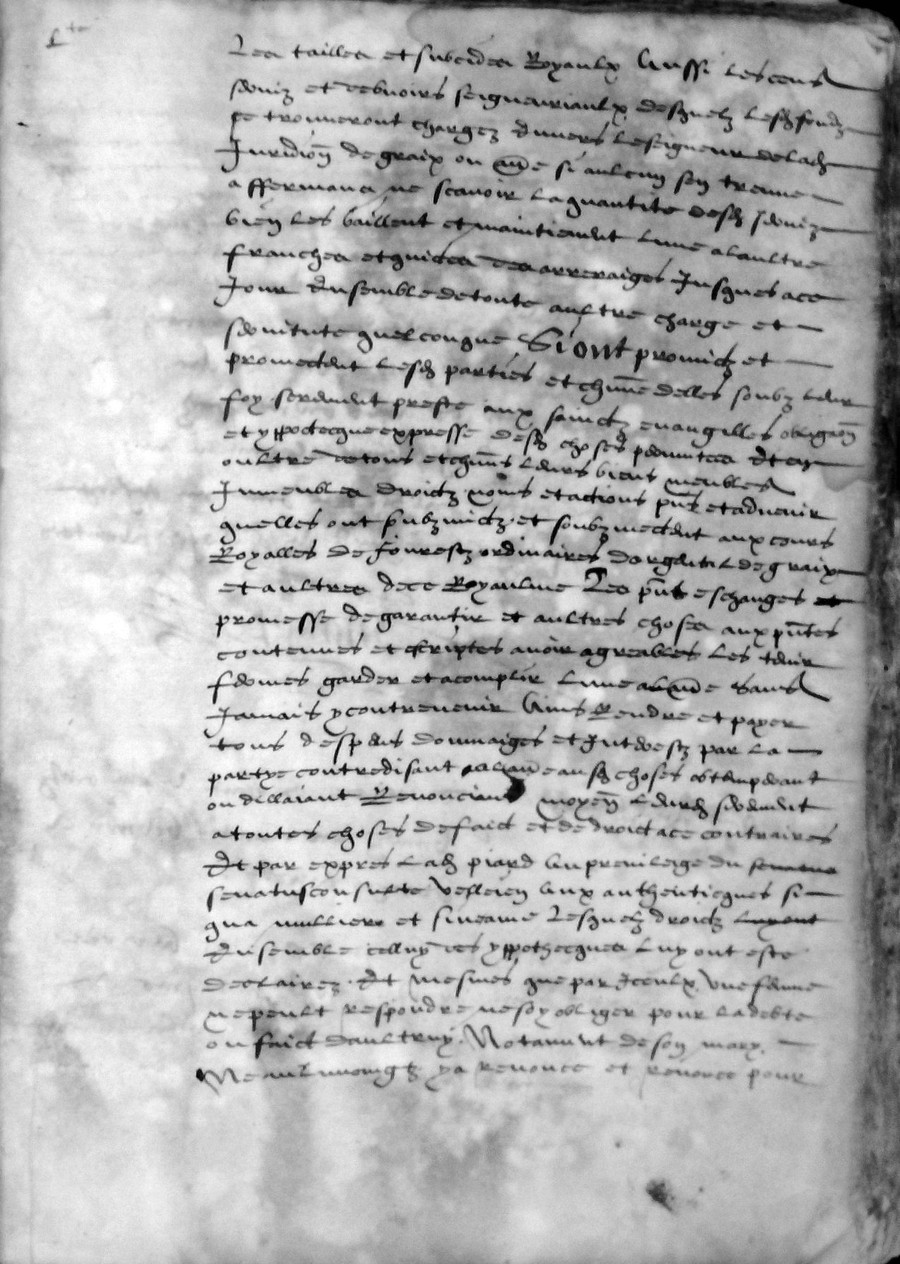 Les tailles et subcides Royaulx Aussi les cens
serviz et debvoirs seigneuriaulx desquelz lesd fondz
se trouveront chargez Envers le seigneur de lad
Juridion de graix ou aue si aulcun sen treuve
affermans ne scavoir la quantite desd serviz
bien les baillent et maintiennent lune a laultre
franches et quictes des arreraiges Jusques a ce
Jour Ensemble de toute aultre charge et
servitute quelconque Si ont promictz et
promectent lesd parties et chune delles soubz leur
foy serement preste aux sainctz evangilles obligaon
et yppotecque expresse desd choses permutees Et en
oultre de tous et chuns leurs biens meubles
Immeubles droictz noms et actions pns et advenir
quelles ont soubzmictz et soubzmectent aux cours
Royalles de fourestz ordinaires dargental de graix
et aultres de ce Royaulme Les pns eschanges et
promesse de garantir et aultres choses aux pntes
contenues et escriptes avoir agreables les tenir
fermes garder et acomplir lune a laue sans
Jamais y contrevenir Ains Rendre et payer
tous despens dommaiges et Interestz par la
partye contredisant a laue ausd choses obtemperant
ou dillaiant Renoncians moyen leurd serement
a toutes choses de faict et de droict a ce contraires
Et par expres lad piard Au previleige du senatus
senatusconsulte velleien Aux authenticques si
qua mullier et sive a me Lesquelz droictz luy ont
Ensemble celluy des yppothecques luy ont este
declairez Et mesmes que par Iceulx Une femme
ne peult respondre ne soy obliger pour la debte
ou faict daultruy Notament de son mary
Neaulmoingtz y a renonce et renonce pour